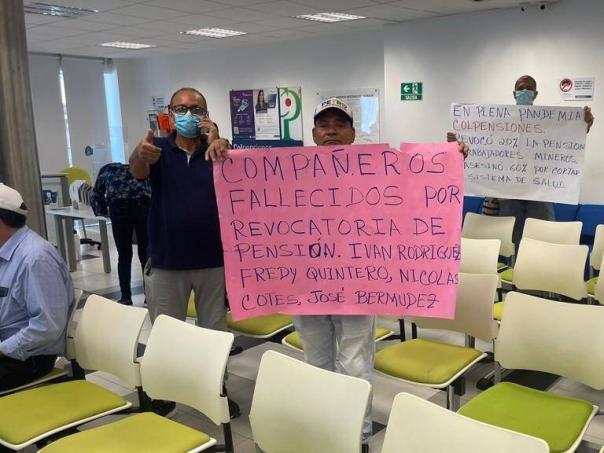 COMPAÑEROS
FALLECIDOS POR
REVOCATORIA DE
PENSIÓN. IVAN RODRIGUEZ
FREDY QUINTERO, NICOLAS
COTES, JOSÉ BERMUDEZ
EN PLENA PANDEMIA
COLPENSIONES.
REVOCÓ 20% LA PENSION
TRABAJADORES MINEROS
ASESINO 60% POR CORTAR
SISTEMA DE SALUD
SALIDA
Colpensiones